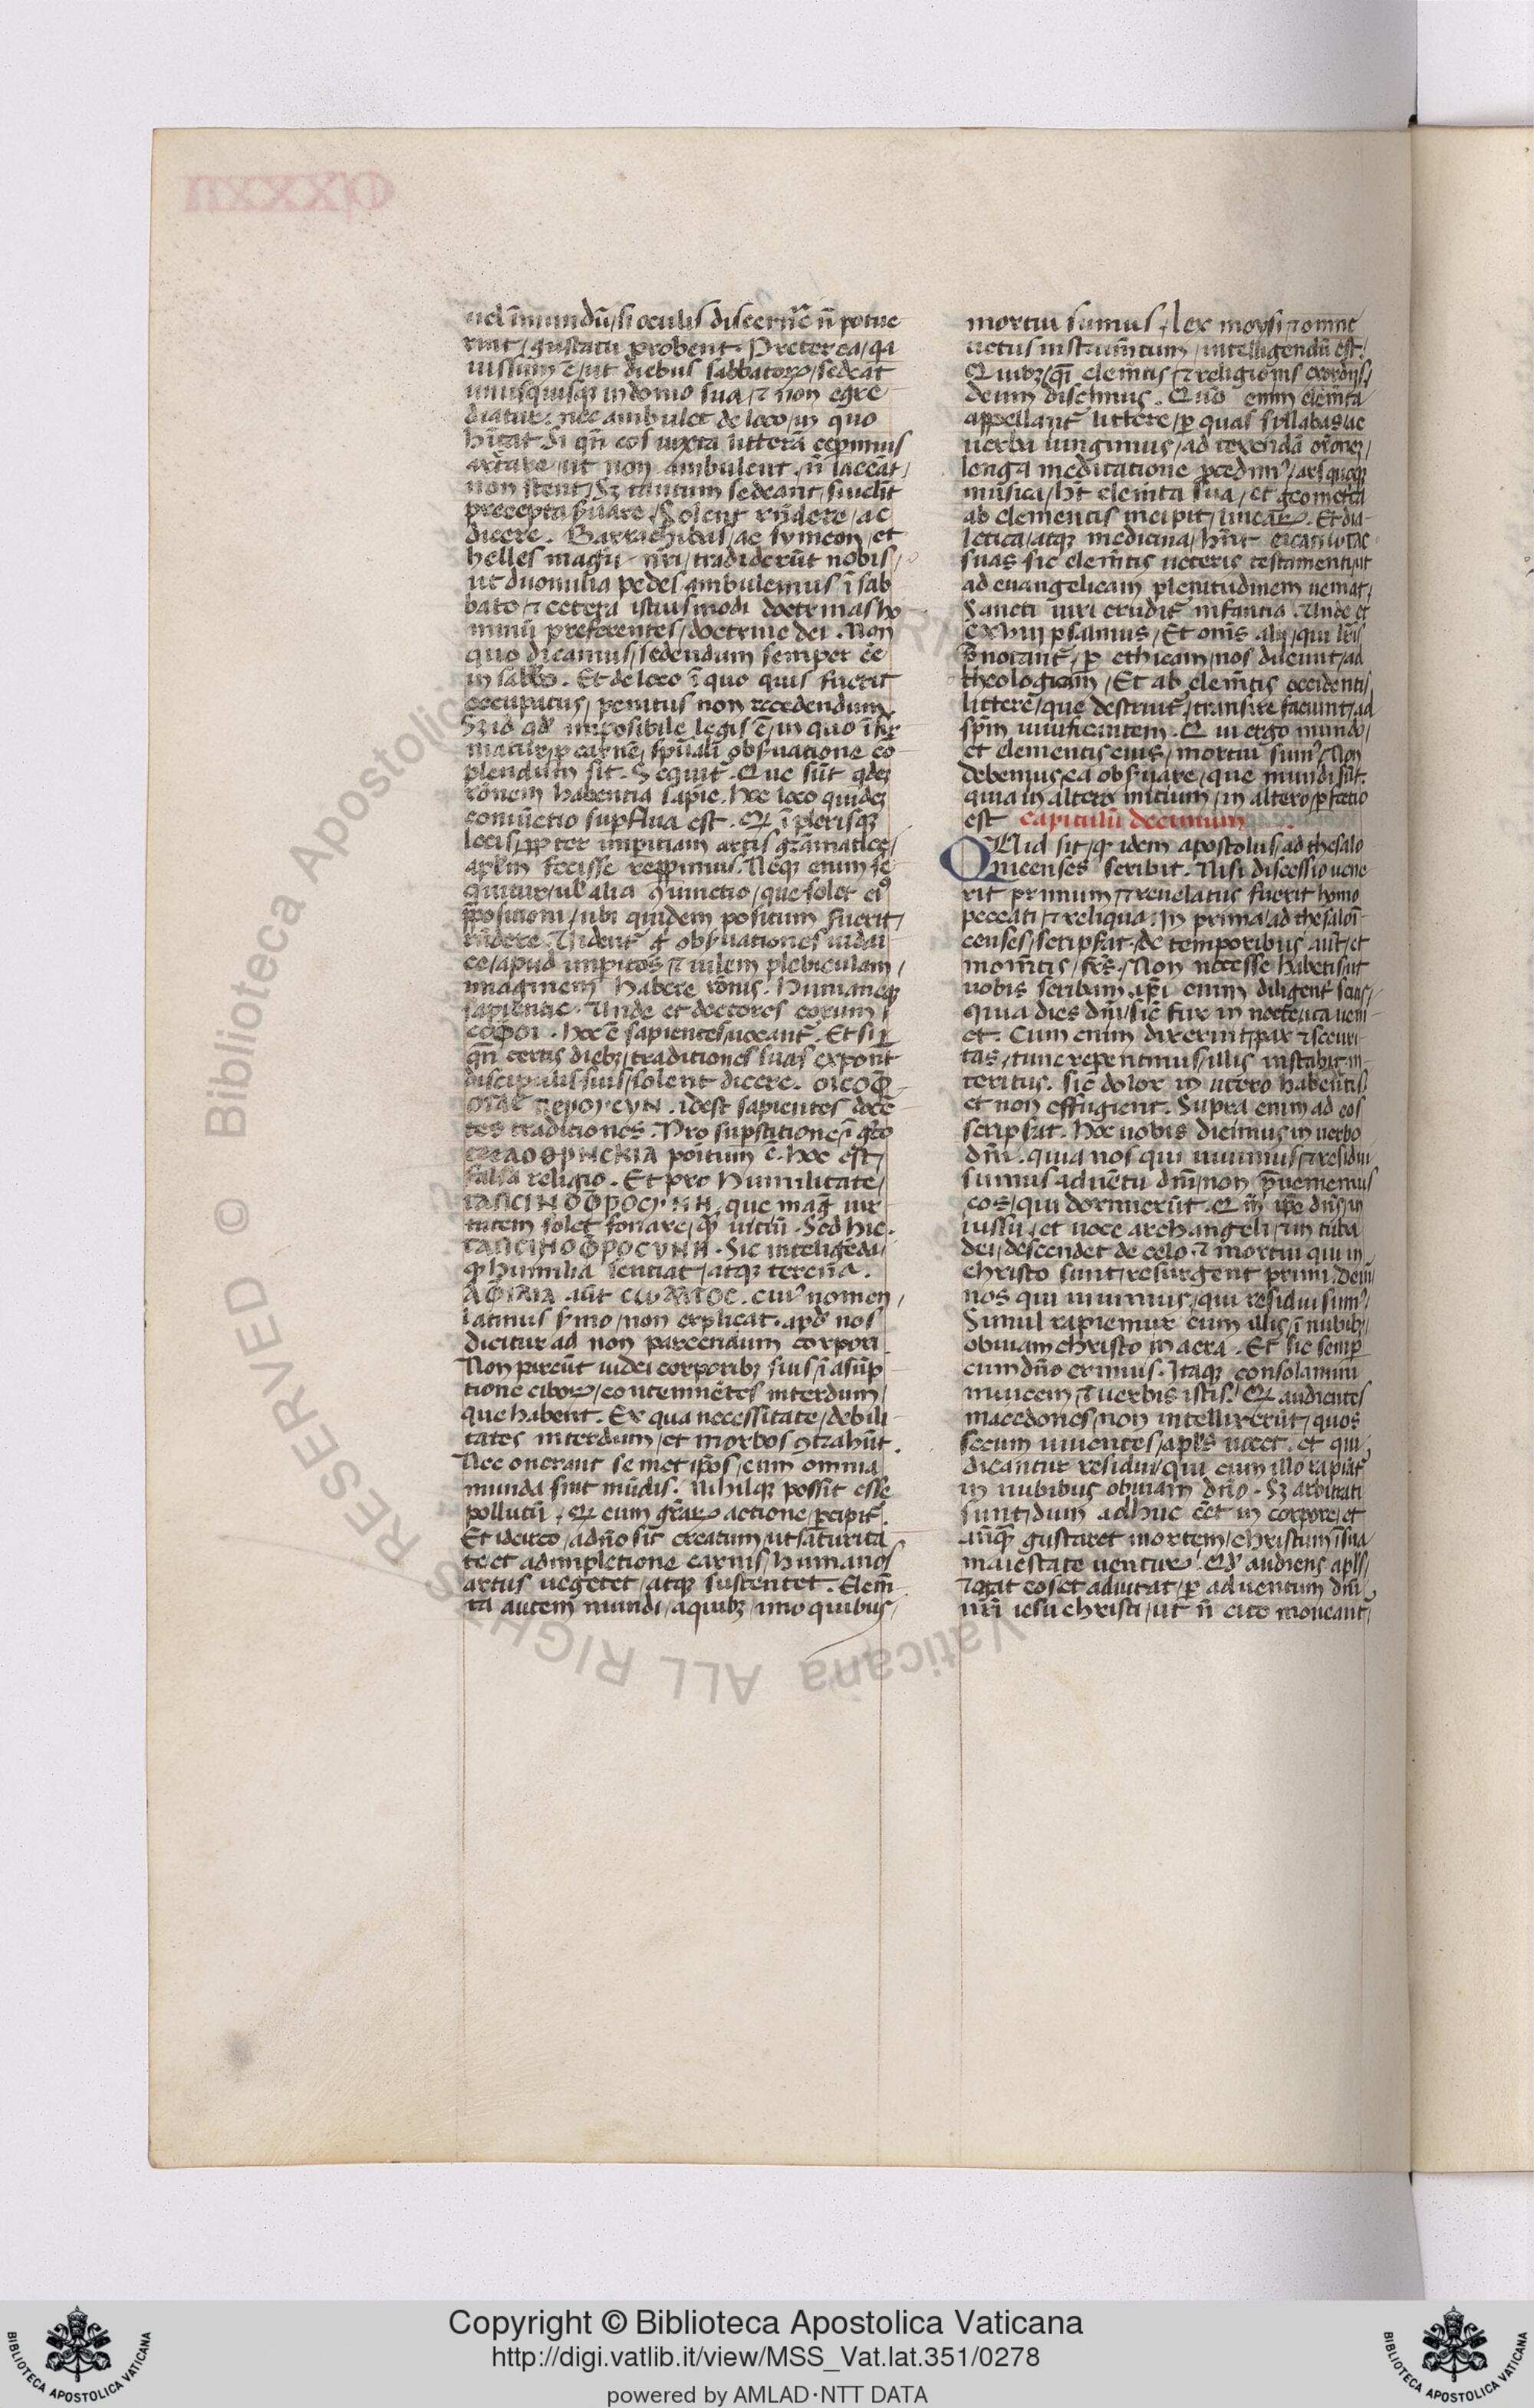 uel īmundū/si oculis discerne᷑ n̄ potue
rint/gustatu probent. Preterea/qa
iussum ē/ut diebus sabbatoꝝ/sedeat
unusquisqꝫ in domo sua/⁊ non egre
diatur/nec ambulet de loco/in quo
hītat Si qn̄ eos iuxta litterā cepimus
artare/ut non ambulent/n̄ iaceāt/
non stent/Sꝫ tantum sedeant/si uelīt
precepta ẜuare/Solent rn̄dere/ac
dicere. Barrachibas/ac symeon/et
helles magr̄i nr̄i/tradiderūt nobis/
ut duo milia pedes ambulemus/ī sab
bato/⁊ cetera istiusmodi doctrinas ho
minū preferentes/doctrine dei. Non
quo dicamus/sedendum semper eē
in sabbō. Et de loco ī quo quis fuerit
occupatus/penitus non recedendum.
Sꝫ id qd̓ imposibile legis ē/in quo īfir
matur/ꝑ carnē/spūali obẜuatione cō
plendum sit. Sequit᷑. Que sūt qdeꝫ
rōnem habentia sapīe. hoc loco quideꝫ
coniūctio supflua est. Qd̓ ī plerisqꝫ
locis/ꝓpter imperitiam artis grāmatice/
apl̄m fecisse repꝑimus. Neqꝫ enim se
quitur/ul̓ alia ꝯiunctio/que solet ei᷒
p̄positioni/ubi quidem positum fuerit/
rn̄dere. Uident᷑ g̊ obẜuationes iudai
ce/apud imperitos/⁊ uilem plebiculam/
imaginem habere rōnis. humaneqꝫ
sapientie. Unde et doctores eorum/
COΦOI. hoc ē sapientes/uocant᷑. Et si ꝗ
qn̄ certis diebꝫ/traditiones suas exponūt
discipulis suis/solent dicere. OICOΦ
. idest sapientes docē
tes traditiones. Pro supstitione/ī greco
poītum ē. hoc est/
falsa religio. Et pro humilitate/
TAΠCINOΦPOCYNH. que mag̓ uir
tutem solet sonare/q̄ uitiū. Sed hic.
TAΠCINOΦPOCYNH. Sic inteligēda/
ꝙ humilia sentiat/atqꝫ terena.
AΦIΔIA aūt CωMATOC. cui᷒ nomen/
latinus s̓mo/non explicat. apd̓ nos
dicitur ad non parcendum corpori
Non parcūt iudei corporibꝫ suis/ī asūp
tione ciboꝝ/contemnētes interdum/
que habent. Ex qua necessitate/debili
tates interdum/et morbos ꝯtrahūt.
Nec onerant semetipōs/cum omnia
munda sint mūdis. Nihilqꝫ possit esse
pollutū/Qd̓ cum gr̄aꝝ actione/ꝑcipit᷑.
Et idcirco/a dn̄o sit creatum/ut saturita
te/et adimpletione carnis/humanos
artus uegetet/atqꝫ sustentet. Elem̄
ta autem mundi/a quibꝫ/imo quibus/
mortui sumus/lex moysi/⁊ omne
uetus instrum̄tum/intelligendū est.
Quibꝫ/qi elem̄tis/⁊ religiōis exordiis/
deum discimus. Quō enim elem̄ta
appellant᷑ littere/ꝑ quas sillabas/ac
uerba iungimus/ad texendā orōneꝫ/
longa meditatione ꝓcedim᷒/arsqueqꝫ
musica/ht elem̄ta sua/et geometria
ab elementis incipit/linearꝝ. Et dia
letica/atqꝫ medicina/hn̄t eicaΓωΓac
suas sic elem̄tis ueteris testamenti/ut
ad euangelicam plenitudinem ueniat/
Sancti uiri erudit᷑ infantia. Unde et
cxviij psalmus/Et om̄s alij/qui lr̄is
p̄notant᷑/ꝑ ethicam/nos ducunt/ad
theologiam/Et ab elem̄tis occidentis
littere/que destruit᷑/transire faciunt/ad
sp̄m uiuificantem. Qui ergo mundo/
et elementis eius/mortui sum᷒/Non
debemus/ea obẜuare/que mundi sūt.
quia in altero initium/in altero/ꝑfectio
est capitulū decimum
QUid sit/ꝙ idem apostolus/ad thesalo
nicenses scribit. Nisi discessio uene
rit primum/⁊ reuelatus fuerit homo
peccati/⁊ reliqua. In prima/ad thesaloī
censes/scripsat. de temporibus aūt/et
mom̄tis/frēs/Non necesse habetis/ut
uobis scribam. ip̄i enim diligent᷑ scitis/
quia dies dn̄i/sic fur in nocte/ita ueni
et. Cum enim dixerint/pax ⁊ securi
tas/tunc repentinus/illis instabit/in
teritus. sic dolor in utero habentis/
et non effugient. Supra enim ad eos
scripsat. Hoc uobis dicimus in uerbo
dn̄i. quia nos qui uiuimus/⁊ residui
sumus/aduētu dn̄i/non p̄ueniemus
eos/qui dormierūt. Qm̄ ipē dn̄s/in
iussu/et uoce archangeli/⁊ in tuba
dei/descendet de celo/⁊ mortui qui in
christo sunt/resurgent primi. Dein̄
nos qui uiuimus/qui residui sum᷒/
Simul rapiemur cum illis/ī nubibꝫ/
obuiam christo in aera. Et sic semp
cum dn̄o erimus. Itaqꝫ consolamini
inuicem/⁊ uerbis istis. Qd̓ audientes
macedones/non intellixerūt/quos
secum uiuentes/apl̄s uocet. et qui
dicantur residui/qui cum illo rapiāt᷑
in nubibus obuiam dn̄o. Sꝫ arbitrati
sunt/dum adhuc eēt in corpore/et
anq̄ gustaret mortem/christum ī sua
maiestate uenturꝝ. Qd̓ audiens apl̄s/
rogat eos et adiurat/ꝑ aduentum dn̄i
nr̄i iesu christi/ut n̄ cito moueant᷑/
Copyright © Biblioteca Apostolica Vaticana
http://digi.vatlib.it/view/MSS_Vat.lat.351/0278
powered by AMLAD·NTT DATA
BIBLIOTECA APOSTOLICA VATICANA
BIBLIOTECA APOSTOLICA VATICANA
© Biblioteca Apostolica Vaticana ALL RIGHTS RESERVED